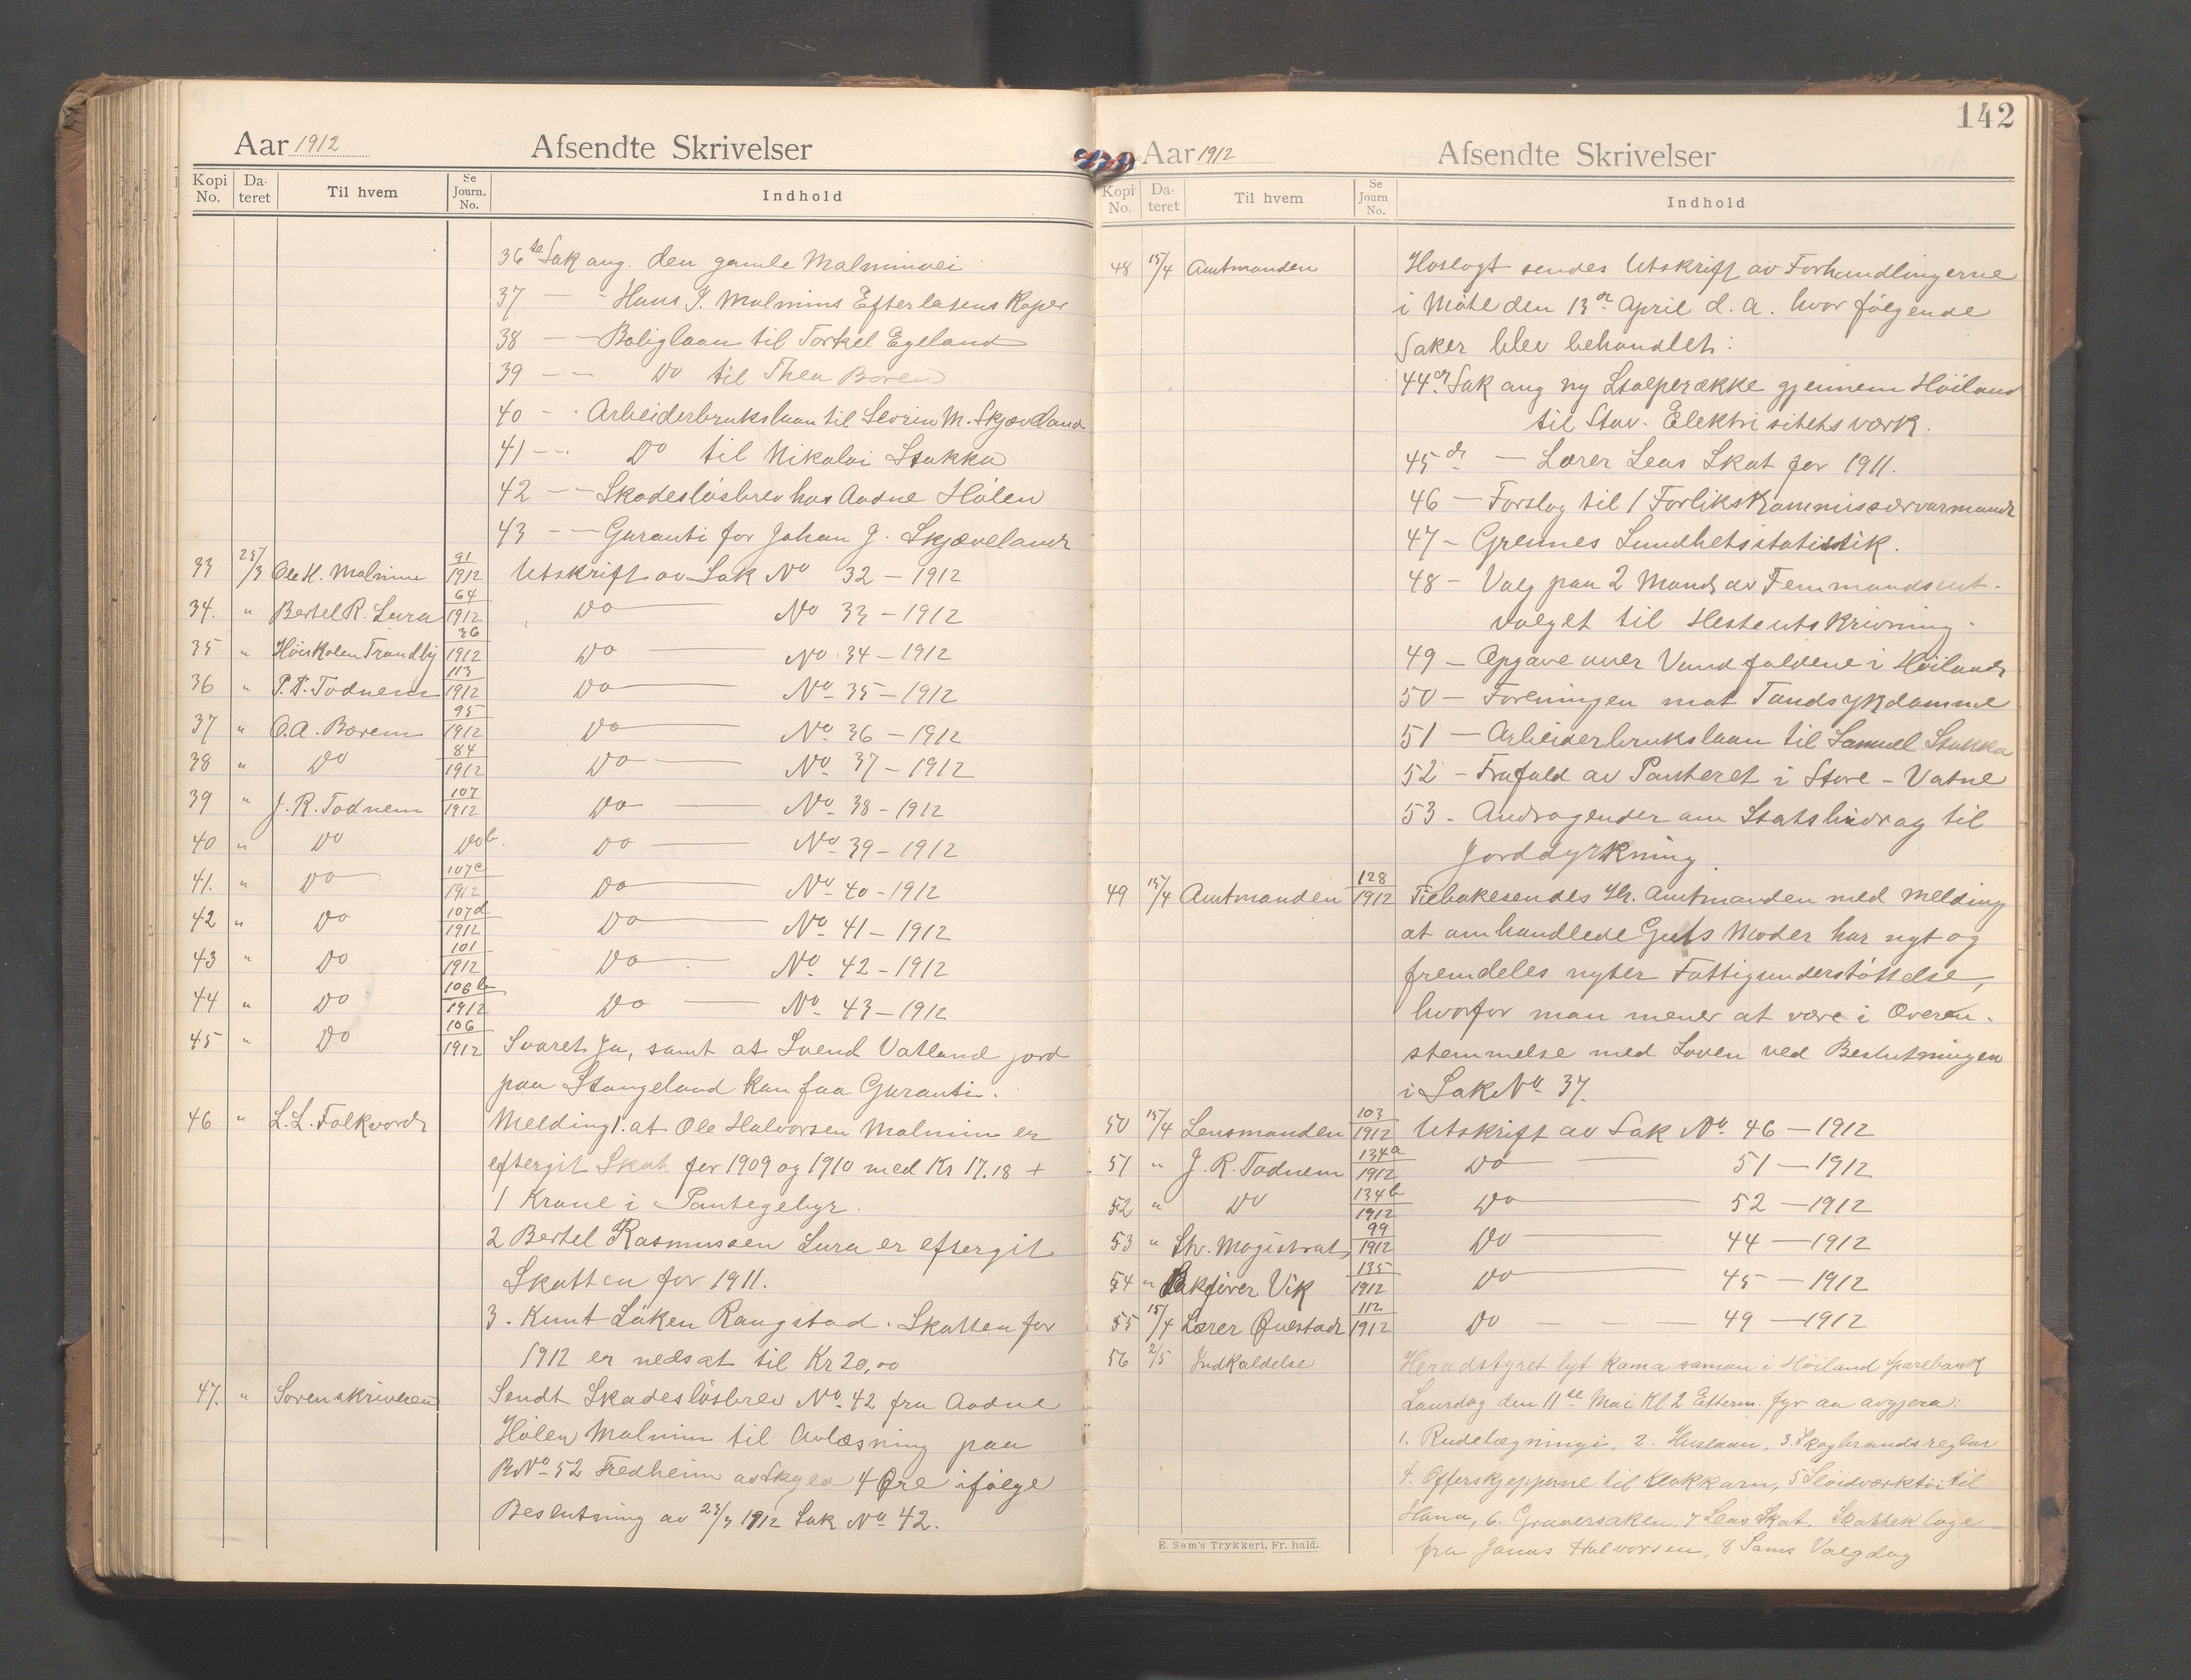 Aar 1912 Afsendte Skrivelser
Kopi No. Da-teret Til hvem Se Journ. No. Indhold
36te Sak ang. den gamle Malmimvei
37 — - Hans J. Malmins Efterlatens Kaper
38 — — Boliglaan til Torkel Egeland
39 — — Do til Thea Boren
40 - - Arbeiderbrukslaan til Sevrin M. Skjæveland
41 - - - Do til Nikolai Stokka
42 — — Skadesløsbrev hos Aadne Hålen
43 — — Garanti for Johan J. Skjæveland
33 25/3 Ole H. Malmin 91/1912 Utskrift av Sak No 32 - 1912
34. " Bertel R. Lura 64/1912 Do — No 33 - 1912
35 " Høiskolen Trandby 36/1912 Do — No 34 - 1912
36 " P. T. Todnem 113/1912 Do — No 35 - 1912
37 " O. A. Borem 95/1912 Do — No 36 - 1912
38 " Do 84/1912 Do — No 37 - 1912
39 " J. R. Todnem 107/1912 Do — No 38 - 1912
40 " Do Do b. Do — No 39 - 1912
41. " Do — 107c/1912 Do — No 40 - 1912
42 " Do 107d/1912 Do — No 41 - 1912
43 " Do 101/1912 Do — No 42 - 1912
44 " Do 106b/1912 Do — No 43 - 1912
45 " Do 106/1912 Svaret Ja, samt at Svend Vatland jord
paa Stangeland kan faa Garanti.
46 " L. L. Folkvord Melding 1. at Ole Halvorsen Malmin er
eftergit Skat for 1909 og 1910 med Kr 17.18 +
1 Krone i Pantegebyr.
2 Bertel Rasmussen Lura er eftergit
Skatten for 1911.
3. Knut Låken Raugstad. Skatten for
1912 er nedsat til Kr 20,00
47. " Sorenskriveren Sendt Skadesløsbrev No 42 fra Aadne
Hålen Malmin til Avlæsning paa
BNo 52 Fredheim av Skyld 4 Øre ifølge
Beslutning av 23/3 1912 Sak No 42.
142
Aar 1912 Afsendte Skrivelser
Kopi No. Da-teret Til hvem Se Journ No. Indhold
48 15/4 Amtmanden Hoslagt sendes Utskrift av Forhandlingerne
i Møte den 13de April d. A. hvor følgende
Saker blev behandlet:
44de Sak ang ny Stolperække gjennem Høiland
til Stav. Elektrisitetsværk.
45de — Lærer Leas Skat for 1911.
46 — Forslag til 1 Forlikskommissærvarmand
47 - Grennes Sundhetsstatistik.
48 - Valg paa 2 Mand av Femmandsut-
valget til Hesteutskrivning.
49 - Opgave over Vandfaldene i Høiland
50 - Foreningen mot Tandsykdomme
51 — Arbeiderbrukslaan til Samuel Stokka
52 - Frafald av Panteret i Store-Vatne
53 - Andragender om Statsbidrag til
Jorddyrkning.
49 15/4 Amtmanden 128/1912 Tilbakesendes Hr. Amtmanden med Melding
at omhandlede Guts Moder har nyt og
fremdeles nyter Fattigunderstøttelse,
hvorfor man mener at være i Overen-
stemmelse med Loven ved Beslutningen
i Sak No 37.
50 15/4 Lensmanden 103/1912 Utskrift av Sak No 46 - 1912
51 " J. R. Todnem 134a/1912 Do — 51 - 1912
52 " Do 134b/1912 Do — 52 - 1912
53 " Stv. Magistrat 99/1912 Do — 44 - 1912
54 " Sakfører Vik 135/1912 Do — 45 - 1912
55 15/4 Lærer Qvestad 112/1912 Do - - — 49 - 1912
56 2/5 Indkaldelse Heradstyret lyt koma saman i Høiland Sparebank
Laurdag den 11te Mai Kl 2 Etterm. fyr aa avgjera:
1. Rudelægningi, 2. Huslaan, 3. Skogbrandsreglar
4. Offerskjepporne til Klokkarn, 5 Sløidværktøi til
Hana, 6. Graversaken, 7 Leas Skat. Skatteklage
fra Jonas Halvorsen, 8 Sams Valgdag
E. Sem's Trykkeri, Fr.hald.